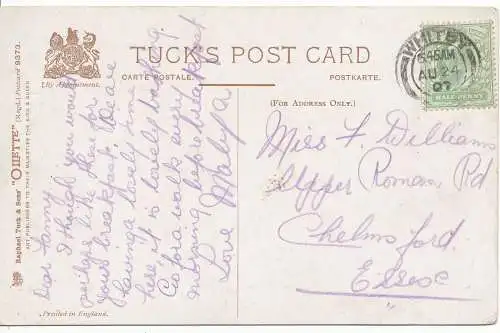 TUCK'S POST CARD
By Appointment.
CARTE POSTALE.
POSTKARTE.
(FOR ADDRESS ONLY.)
WHITBY
5.45AM
AU 24
07
HALFPENNY
Raphael Tuck & Sons' "OILETTE" (Regd.) Postcard 9373.
ART PUBLISHERS TO THEIR MAJESTIES THE KING & QUEEN
Printed in England.
Dear Fanny,
I though you would
perhaps like these for
your breakfast. We are
having a lovely time
here, it is lovely
Go for a walk every
morning before breakfast
Love
Miss F. Williams
Upper Roman Rd
Chelmsford
Essex